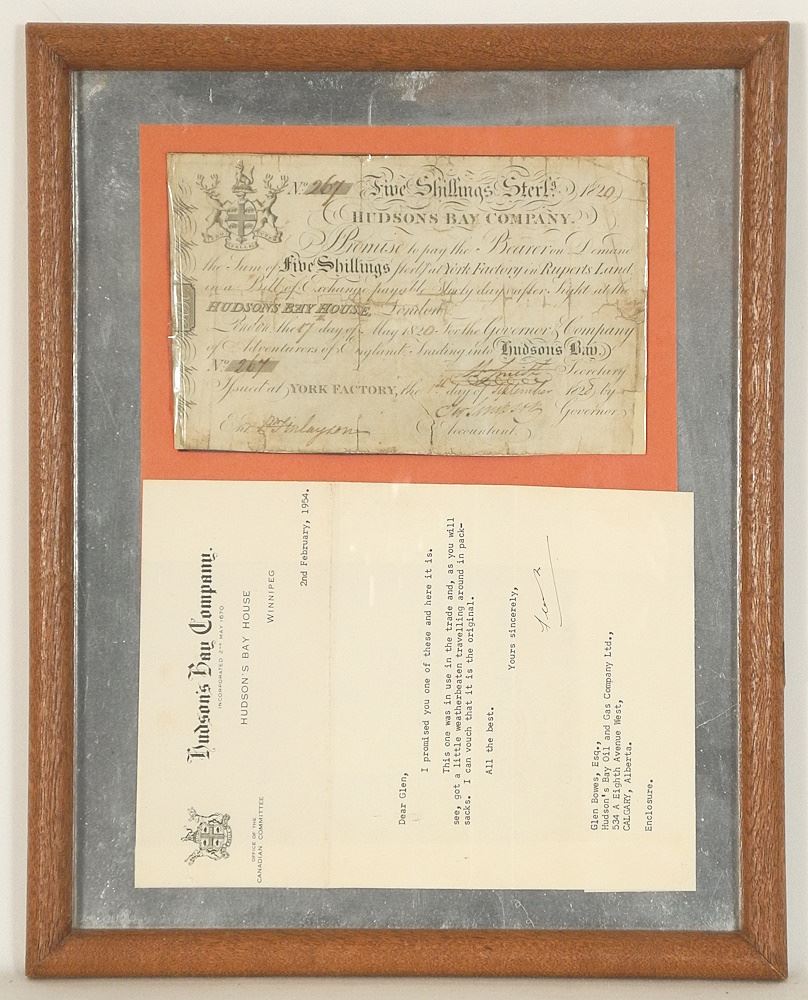 No. 267 Five Shillings Sterlg. 1820
HUDSONS BAY COMPANY.
I Promise to pay the Bearer on Demand
the Sum of Five Shillings Sterlg. at York Factory in Ruperts Land
in a Bill of Exchange payable Sixty days after Sight at the
HUDSONS BAY HOUSE, London
London the 17 day of May 1820 For the Governor & Company
of Adventurers of England Trading into Hudsons Bay.
No. 267 Secretary
Issued at YORK FACTORY, the day of September 1820 by
Governor
Entd. Finlayson Accountant.
Hudson's Bay Company.
INCORPORATED 2ND MAY 1670
HUDSON'S BAY HOUSE
WINNIPEG
OFFICE OF THE
CANADIAN COMMITTEE
2nd February, 1954.
Dear Glen,
I promised you one of these and here it is.
This one was in use in the trade and, as you will
see, got a little weatherbeaten travelling around in pack-
sacks. I can vouch that it is the original.
All the best.
Yours sincerely,
Glen Bowes, Esq.,
Hudson's Bay Oil and Gas Company Ltd.,
534 A Eighth Avenue West,
CALGARY, Alberta.
Enclosure.